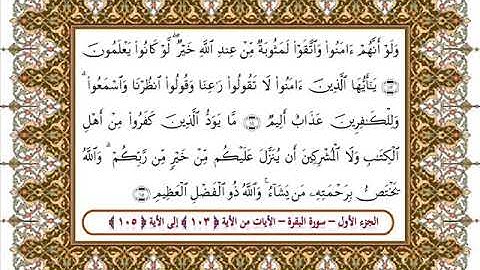 وَلَوْ أَنَّهُمْ ءَامَنُوا۟ وَٱتَّقَوْا۟ لَمَثُوبَةٌ مِّنْ عِندِ ٱللَّهِ خَيْرٌ ۖ لَّوْ كَانُوا۟ يَعْلَمُونَ
﴿١٠٣﴾ يَٰٓأَيُّهَا ٱلَّذِينَ ءَامَنُوا۟ لَا تَقُولُوا۟ رَٰعِنَا وَقُولُوا۟ ٱنظُرْنَا وَٱسْمَعُوا۟ ۗ
وَلِلْكَٰفِرِينَ عَذَابٌ أَلِيمٌ ﴿١٠٤﴾ مَّا يَوَدُّ ٱلَّذِينَ كَفَرُوا۟ مِنْ أَهْلِ
ٱلْكِتَٰبِ وَلَا ٱلْمُشْرِكِينَ أَن يُنَزَّلَ عَلَيْكُم مِّنْ خَيْرٍ مِّن رَّبِّكُمْ ۗ وَٱللَّهُ
يَخْتَصُّ بِرَحْمَتِهِۦ مَن يَشَآءُ ۚ وَٱللَّهُ ذُو ٱلْفَضْلِ ٱلْعَظِيمِ ﴿١٠٥﴾
الجزء الأول – سورة البقرة – الآيات من الآية ﴿ ١٠٣ ﴾ إلى الآية ﴿ ١٠٥ ﴾